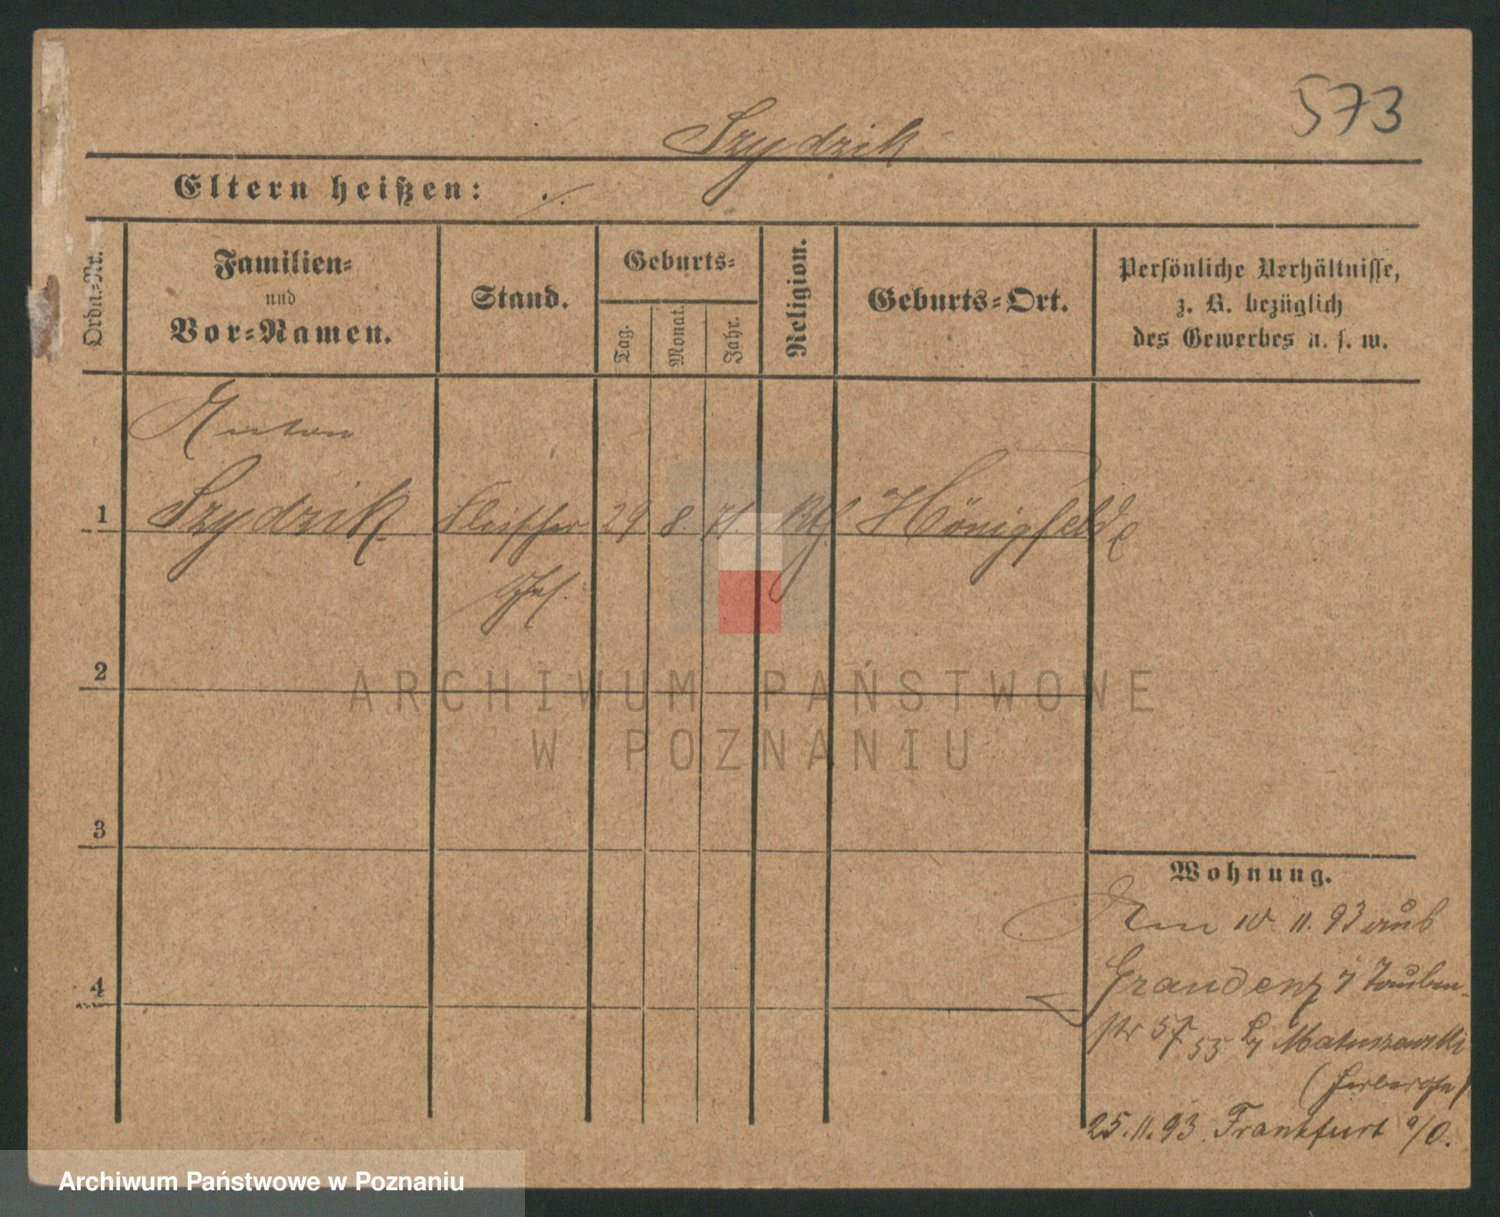 573
Szydzik
Eltern heißen:
Ordn.-Nr.
Familien-
und
Vor-Namen.
Stand.
Geburts-
Tag.
Monat.
Jahr.
Religion.
Geburts-Ort.
Persönliche Verhältnisse,
z. B. bezüglich
des Gewerbes u. s. w.
Anton
1 Szydzik Fleischer 29 8 71 kth Hönigfelde
Ghl.
2
3
4
Wohnung.
Am 10 11. 93 aus
Graudenz Tauben-
str 57 55 Matuszewski
(Herberge)
25. 11. 93 Frankfurt a/O.
ARCHIWUM PAŃSTWOWE
W POZNANIU
Archiwum Państwowe w Poznaniu